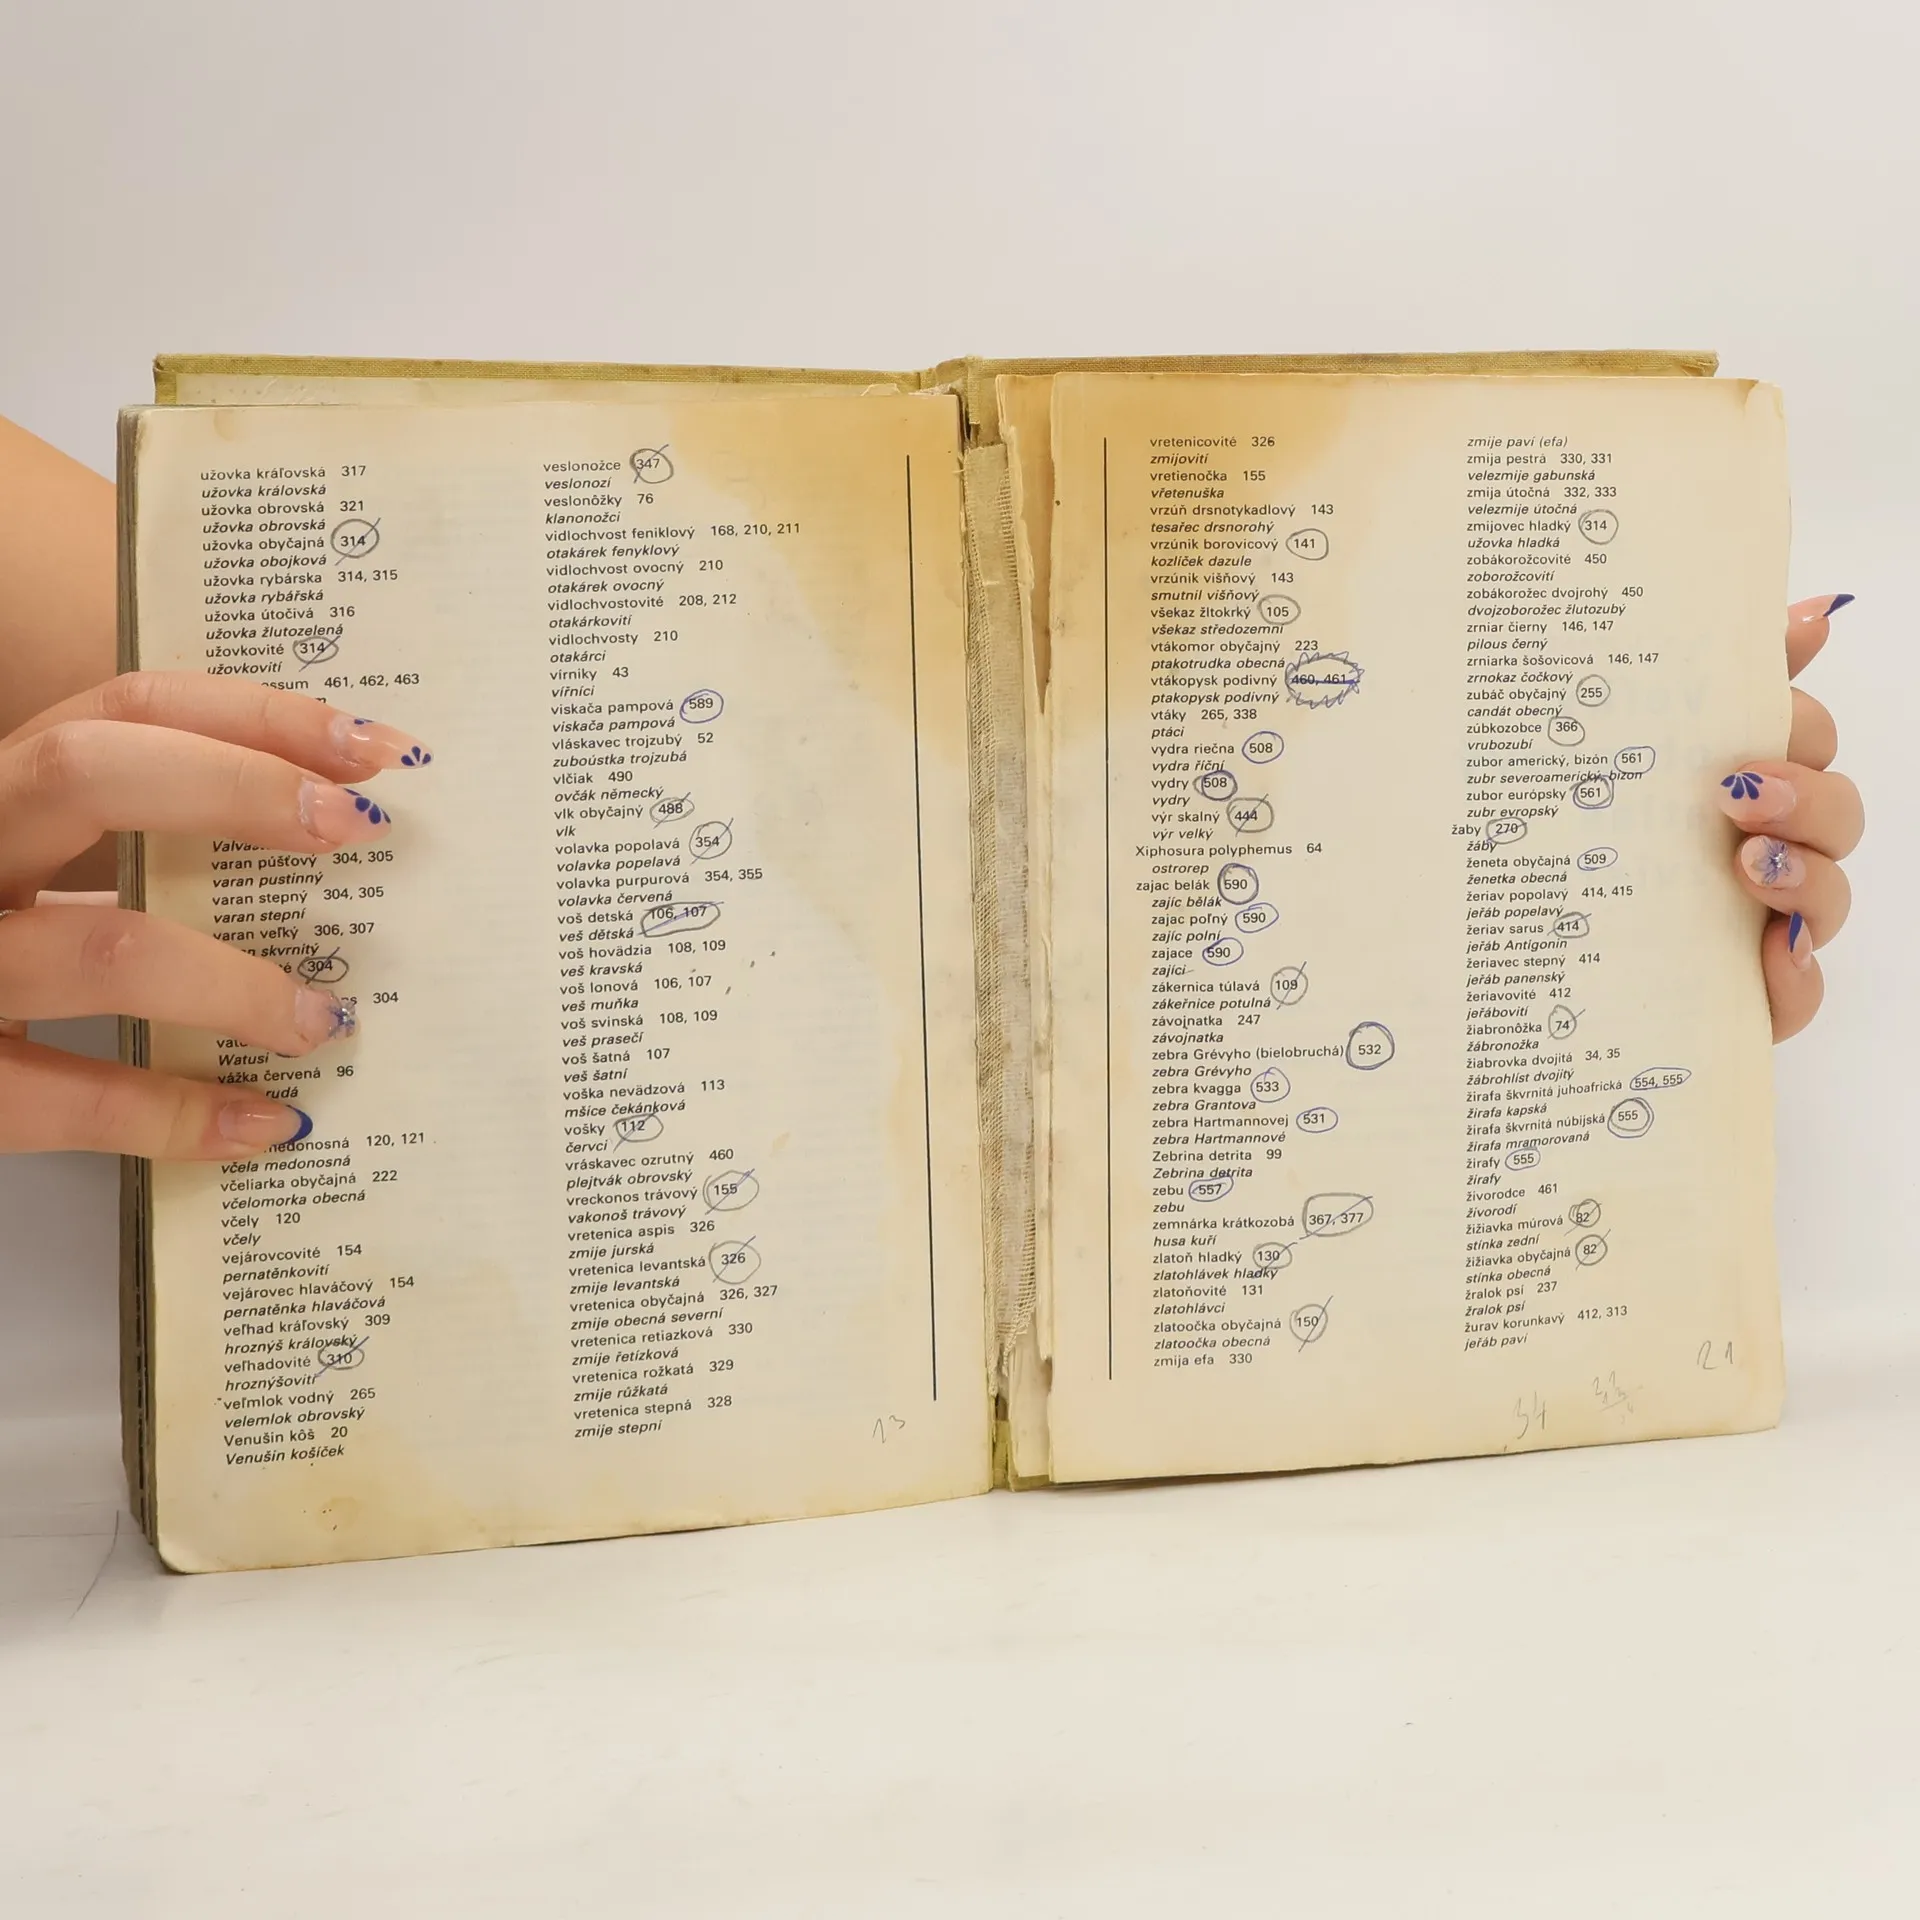 užovka kráľovská 317
užovka královská
užovka obrovská 321
užovka obrovská
užovka obyčajná 314
užovka obojková
užovka rybárska 314, 315
užovka rybářská
užovka útočivá 316
užovka žlutozelená
užovkovité 314
užovkovití
461, 462, 463
varan púšťový 304, 305
varan pustinný
varan stepný 304, 305
varan stepní
varan veľký 306, 307
skvrnitý
304
304
Watusi
vážka červená 96
rudá
120, 121
včela medonosná
včeliarka obyčajná 222
včelomorka obecná
včely 120
včely
vejárovcovité 154
pernatěnkovití
vejárovec hlaváčový 154
pernatěnka hlaváčová
veľhad kráľovský 309
hroznýš královský
veľhadovité 310
hroznýšovití
veľmlok vodný 265
velemlok obrovský
Venušin kôš 20
Venušin košíček
veslonožce 347
veslonozí
veslonôžky 76
klanonožci
vidlochvost feniklový 168, 210, 211
otakárek fenyklový
vidlochvost ovocný 210
otakárek ovocný
vidlochvostovité 208, 212
otakárkovití
vidlochvosty 210
otakárci
vírniky 43
vířníci
viskača pampová 589
viskača pampová
vláskavec trojzubý 52
zuboústka trojzubá
vlčiak 490
ovčák německý
vlk obyčajný 488
vlk
volavka popolavá 354
volavka popelavá
volavka purpurová 354, 355
volavka červená
voš detská 106, 107
veš dětská
voš hovädzia 108, 109
veš kravská
voš lonová 106, 107
veš muňka
voš svinská 108, 109
veš prasečí
voš šatná 107
veš šatní
voška nevädzová 113
mšice čekánková
vošky 112
červci
vráskavec ozrutný 460
plejtvák obrovský
vreckonos trávový 155
vakonoš trávový
vretenica aspis 326
zmije jurská
vretenica levantská 326
zmije levantská
vretenica obyčajná 326, 327
zmije obecná severní
vretenica retiazková 330
zmije řetízková
vretenica rožkatá 329
zmije růžkatá
vretenica stepná 328
zmije stepní
13
vretenicovité 326
zmijovití
vretienočka 155
vřetenuška
vrzúň drsnotykadlový 143
tesařec drsnorohý
vrzúnik borovicový 141
kozlíček dazule
vrzúnik višňový 143
smutnil višňový
všekaz žltokrký 105
všekaz středozemní
vtákomor obyčajný 223
ptakotrudka obecná
vtákopysk podivný 460, 461
ptakopysk podivný
vtáky 265, 338
ptáci
vydra riečna 508
vydra říční
vydry 508
vydry
výr skalný 444
výr velký
Xiphosura polyphemus 64
ostrorep
zajac belák 590
zajíc bělák
zajac poľný 590
zajíc polní
zajace 590
zajíci
zákernica túlavá 109
zákeřnice potulná
závojnatka 247
závojnatka
zebra Grévyho (bielobruchá) 532
zebra Grévyho
zebra kvagga 533
zebra Grantova
zebra Hartmannovej 531
zebra Hartmannové
Zebrina detrita 99
Zebrina detrita
zebu 557
zebu
zemnárka krátkozobá 367, 377
husa kuří
zlatoň hladký 130
zlatohlávek hladký
zlatoňovité 131
zlatohlávci
zlatoočka obyčajná 150
zlatoočka obecná
zmija efa 330
zmije paví (efa)
zmija pestrá 330, 331
velezmije gabunská
zmija útočná 332, 333
velezmije útočná
zmijovec hladký 314
užovka hladká
zobákorožcovité 450
zoborožcovití
zobákorožec dvojrohý 450
dvojzoborožec žlutozubý
zrniar čierny 146, 147
pilous černý
zrniarka šošovicová 146, 147
zrnokaz čočkový
zubáč obyčajný 255
candát obecný
zúbkozobce 366
vrubozubí
zubor americký, bizón 561
zubr severoamerický, bizon
zubor európsky 561
zubr evropský
žaby 270
žáby
ženeta obyčajná 509
ženetka obecná
žeriav popolavý 414, 415
jeřáb popelavý
žeriav sarus 414
jeřáb Antigonin
žeriavec stepný 414
jeřáb panenský
žeriavovité 412
jeřábovití
žiabronôžka 74
žábronožka
žiabrovka dvojitá 34, 35
žábrohlíst dvojitý
žirafa škvrnitá juhoafrická 554, 555
žirafa kapská
žirafa škvrnitá núbijská 555
žirafa mramorovaná
žirafy 555
žirafy
živorodce 461
živorodí
žižiavka múrová 82
stínka zední
žižiavka obyčajná 82
stínka obecná
žralok psí 237
žralok psí
žurav korunkavý 412, 313
jeřáb paví
21
34